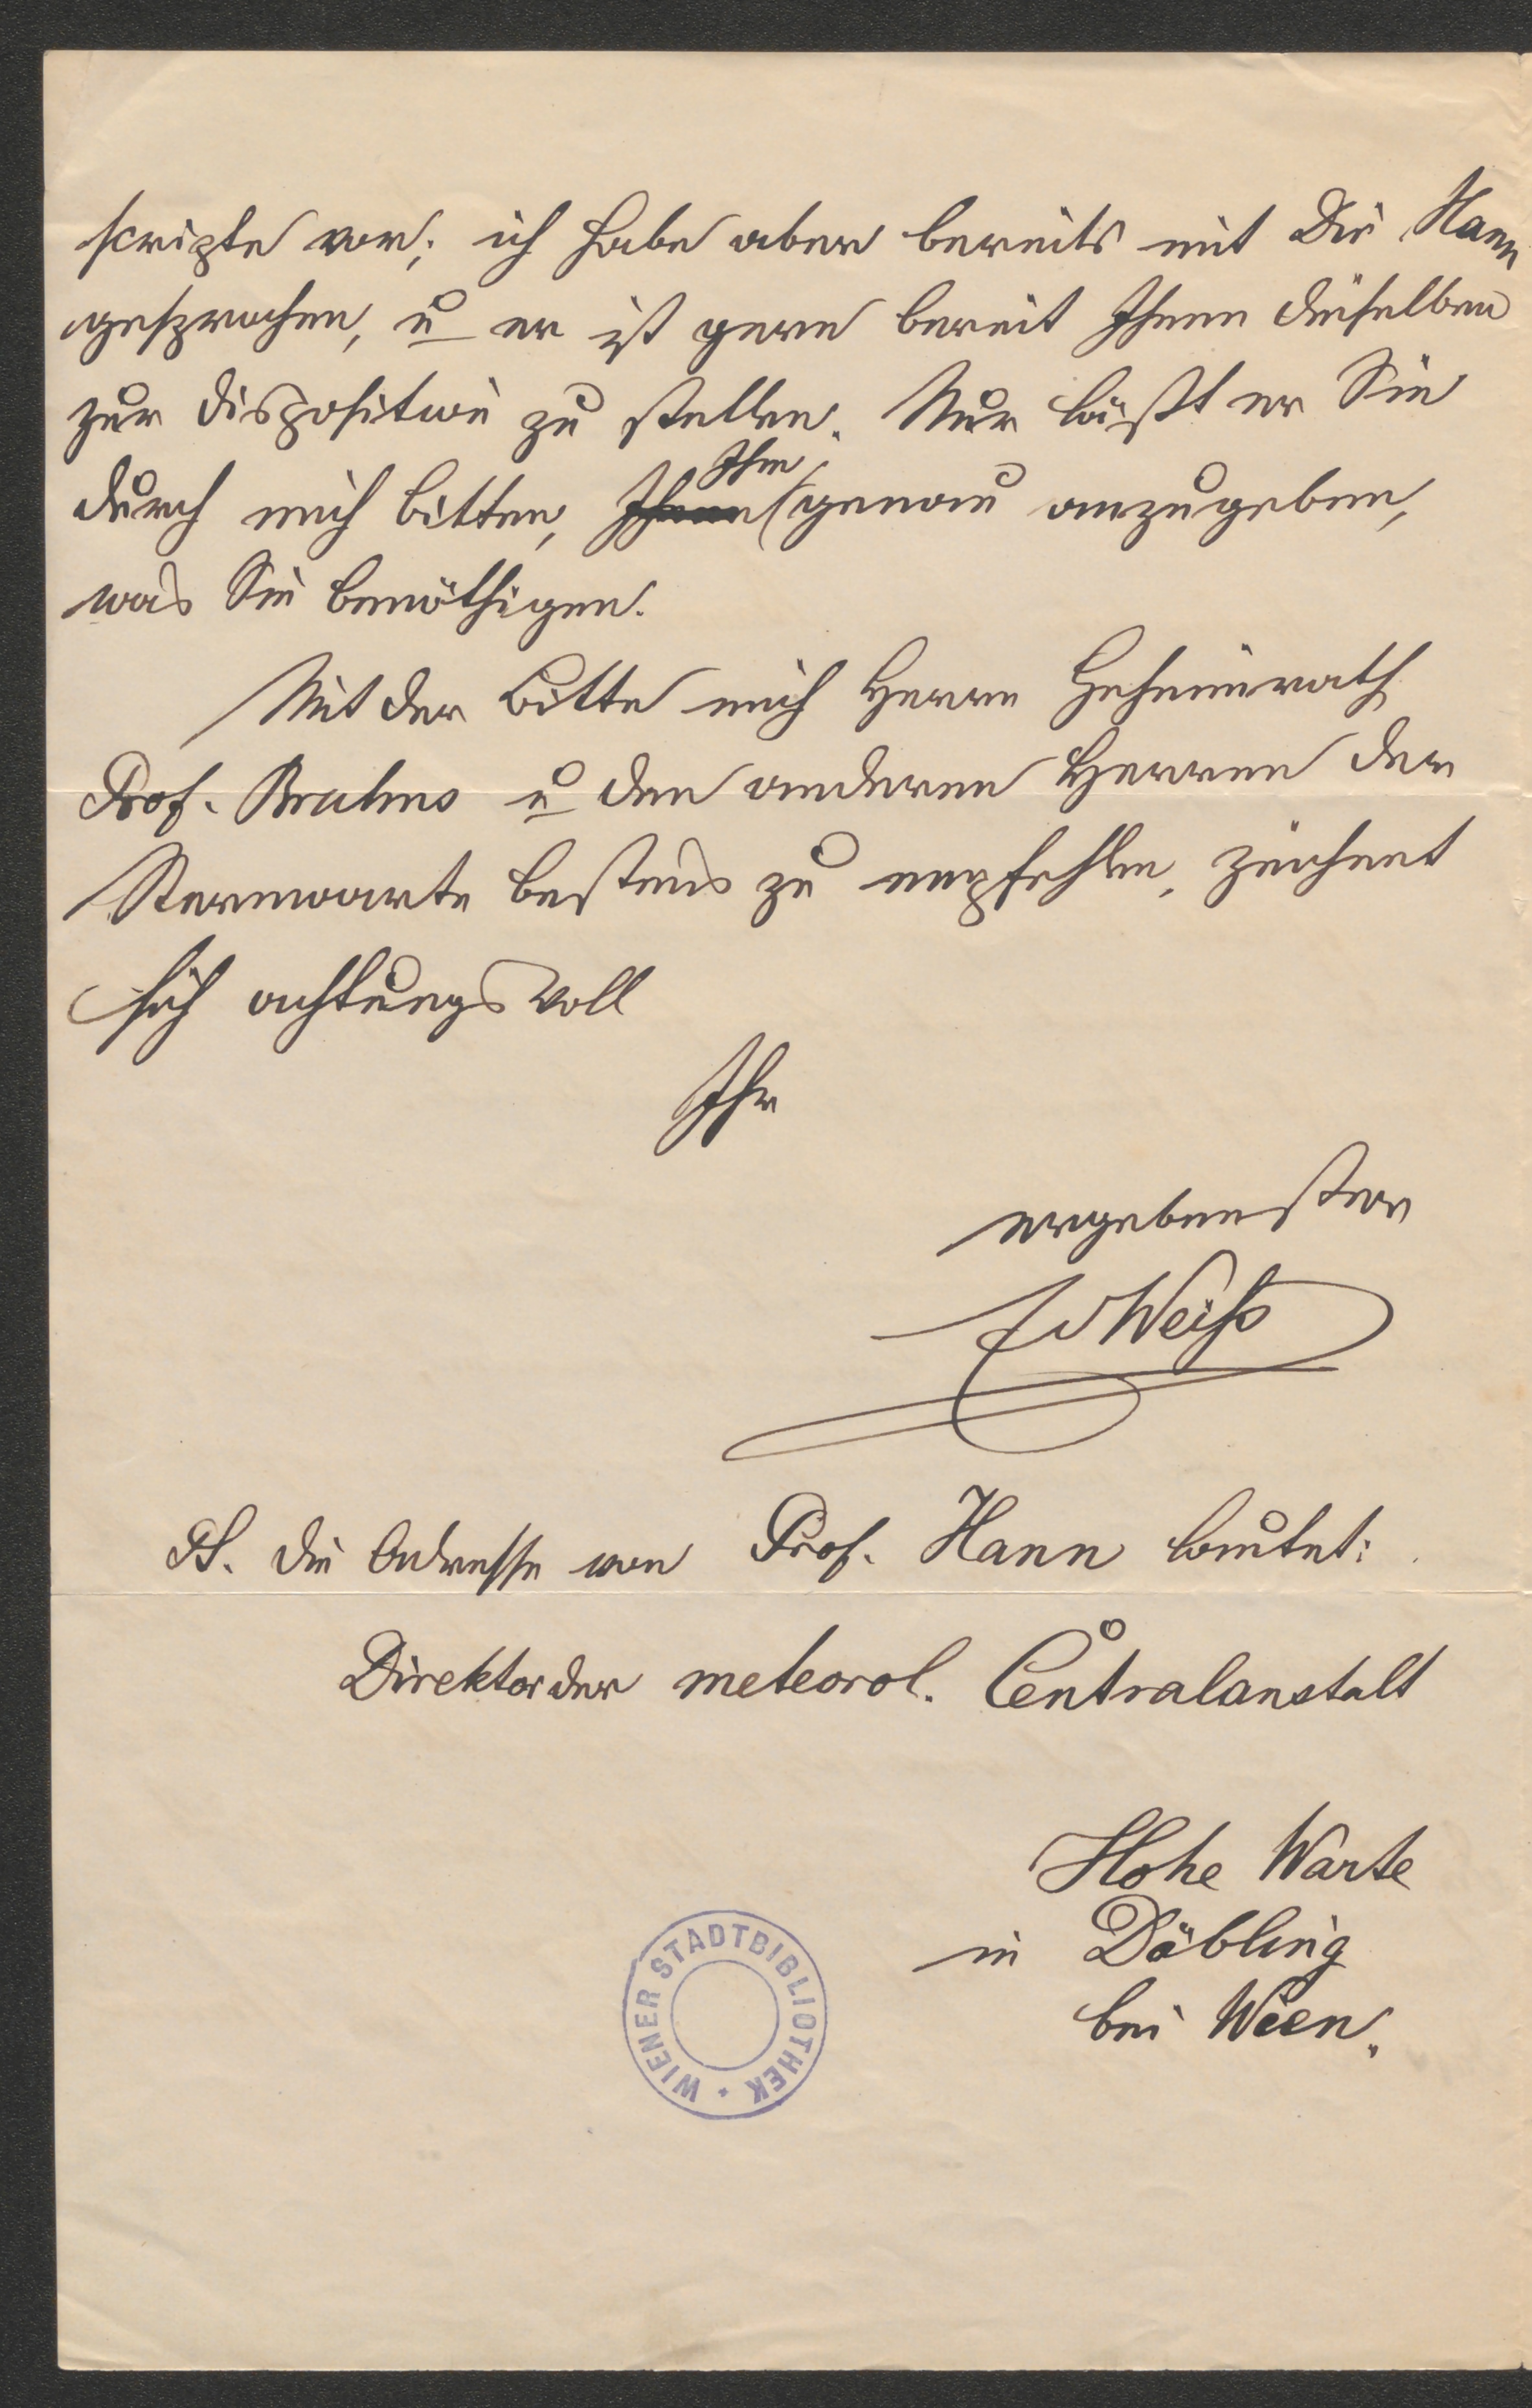 scripte vor; ich habe aber bereits mit Dir Hann
gesprochen, u er ist gern bereit Ihnen dieselben
zur Disposition zu stellen. Nur läßt er Sie
durch mich bitten, Ihnen Ihm genau anzugeben,
was Sie benöthigen.
Mit der Bitte mich Herrn Geheimrath
Prof. Bruhns u den anderen Herren der
Sternwarte bestens zu empfehlen, zeichnet
sich achtungsvoll
Ihr
ergebenster
E Weiß
PS. Die Adresse von Prof. Hann lautet:
Direktor der meteorol. Centralanstalt
Hohe Warte
in Döbling
bei Wien.
WIENER STADTBIBLIOTHEK